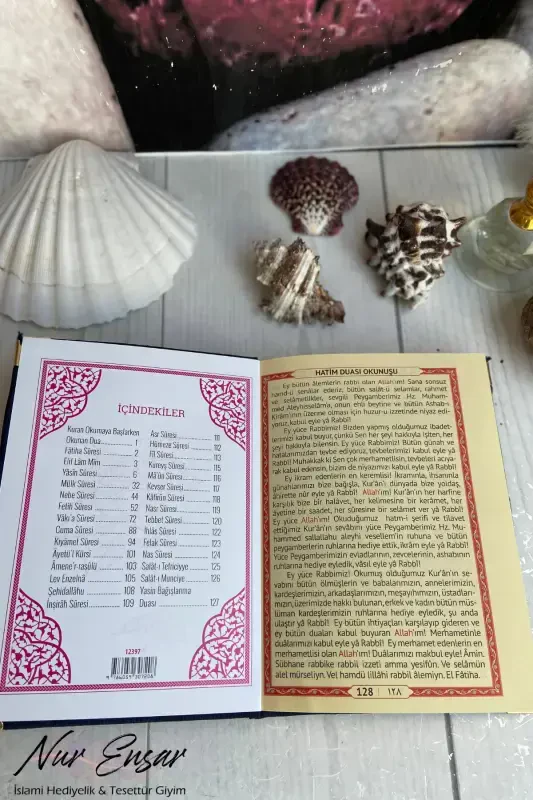 İÇİNDEKİLER
Kuran Okumaya Başlarken
Okunan Dua 1
Fâtiha Sûresi 2
Elif Lâm Mîm 3
Yâsîn Sûresi 6
Mülk Sûresi 32
Nebe Sûresi 44
Fetih Sûresi 52
Vâkı'a Sûresi 72
Cuma Sûresi 88
Kıyâmet Sûresi 94
Âyetü'l Kürsî 101
Âmene'r-rasûlü 103
Lev Enzelnâ 105
Şehidallâhu 108
İnşirâh Sûresi 109
Asr Sûresi 111
Hümeze Sûresi 112
Fîl Sûresi 113
Kureyş Sûresi 115
Mâ'ûn Sûresi 116
Kevser Sûresi 117
Kâfirûn Sûresi 118
Nasr Sûresi 119
Tebbet Sûresi 120
İhlâs Sûresi 122
Felak Sûresi 123
Nas Sûresi 124
Salât-ı Tefriciyye 125
Salât-ı Münciye 126
Yasin Bağışlanma
Duası 127
12397
HATİM DUASI OKUNUŞU
Ey bütün âlemlerin rabbi olan Allah'ım! Sana sonsuz
hamd-ü senâlar ederiz, bütün salât-ü selamlar, rahmet
ve selâmetlikler, sevgili Peygamberimiz Hz. Muham-
med Aleyhisselâmla, onun ehli beytine ve bütün Ashab-ı
Kirâm'ının üzerine olması için huzur-u izzetinde niyaz edi-
yoruz, kabul eyle yâ Rabbî!
Ey yüce Rabbimiz! Bizden yapmış olduğumuz ibadet-
lerimizi kabul buyur, çünkü Sen her şeyi hakkıyla işiten, her
şeyi hakkıyla bilensin. Ey yüce Rabbimiz! Bütün günah ve
hatalarımızdan tevbe ediyoruz, tevbelerimizi kabul eyle yâ
Rabbî! Muhakkak ki Sen çok merhametlisin, tevbeleri acıya-
rak kabul edensin, bizim de niyazımızı kabul eyle yâ Rabbî!
Ey ikram edenlerin en keremlisi! İkramınla, ihsanınla
günahlarımızı bize bağışla, Kur'ân'ı dünyada bize yoldaş,
âhirette nûr eyle yâ Rabbî! Allah'ım! Kur'ân'ın her harfine
karşılık bize bir halâvet, her kelimesine bir kerâmet, her
âyetine bir saadet, her sûresine bir selâmet ver yâ Rabbî!
Ey yüce Allah'ım! Okuduğumuz hatm-i şerifi ve tilâvet
ettiğimiz Kur'ân'ın sevâbını yüce Peygamberimiz Hz. Mu-
hammed sallallahu aleyhi vesellem'in ruhuna ve bütün
peygamberlerin ruhlarına hediye ettik, ikrâm eyle yâ Rabbî!
Yüce Peygamberimizin evladlarının, zevcelerinin, ashabının
ruhlarına hediye eyledik, vâsıl eyle yâ Rabbî!
Ey yüce Rabbimiz! Okumuş olduğumuz Kur'ân'ın se-
vabını bütün ölmüşlerin ve babalarımızın, annelerimizin,
kardeşlerimizin, arkadaşlarımızın, meşayıhımızın, üstadları-
mızın, üzerimizde hakkı bulunan, erkek ve kadın bütün müs-
lüman kardeşlerimizin ruhlarına hediye eyledik, şu anda
ulaştır yâ Rabbî! Ey bütün ihtiyaçları karşılayıp gideren ve
ey bütün duaları kabul buyuran Allah'ım! Merhametinle
duâlarımızı kabul eyle yâ Rabbî! Ey merhamet edenlerin en
merhametlisi olan Allah'ım! Duâlarımızı makbul eyle! Âmin.
Sübhane rabbike rabbil izzeti amma yesifûn. Ve selâmün
alel mürseliyn. Vel hamdü lillâhi rabbil âlemiyn. El Fâtiha.
128 ١٢٨
Nur Ensar
İslami Hediyelik & Tesettür Giyim